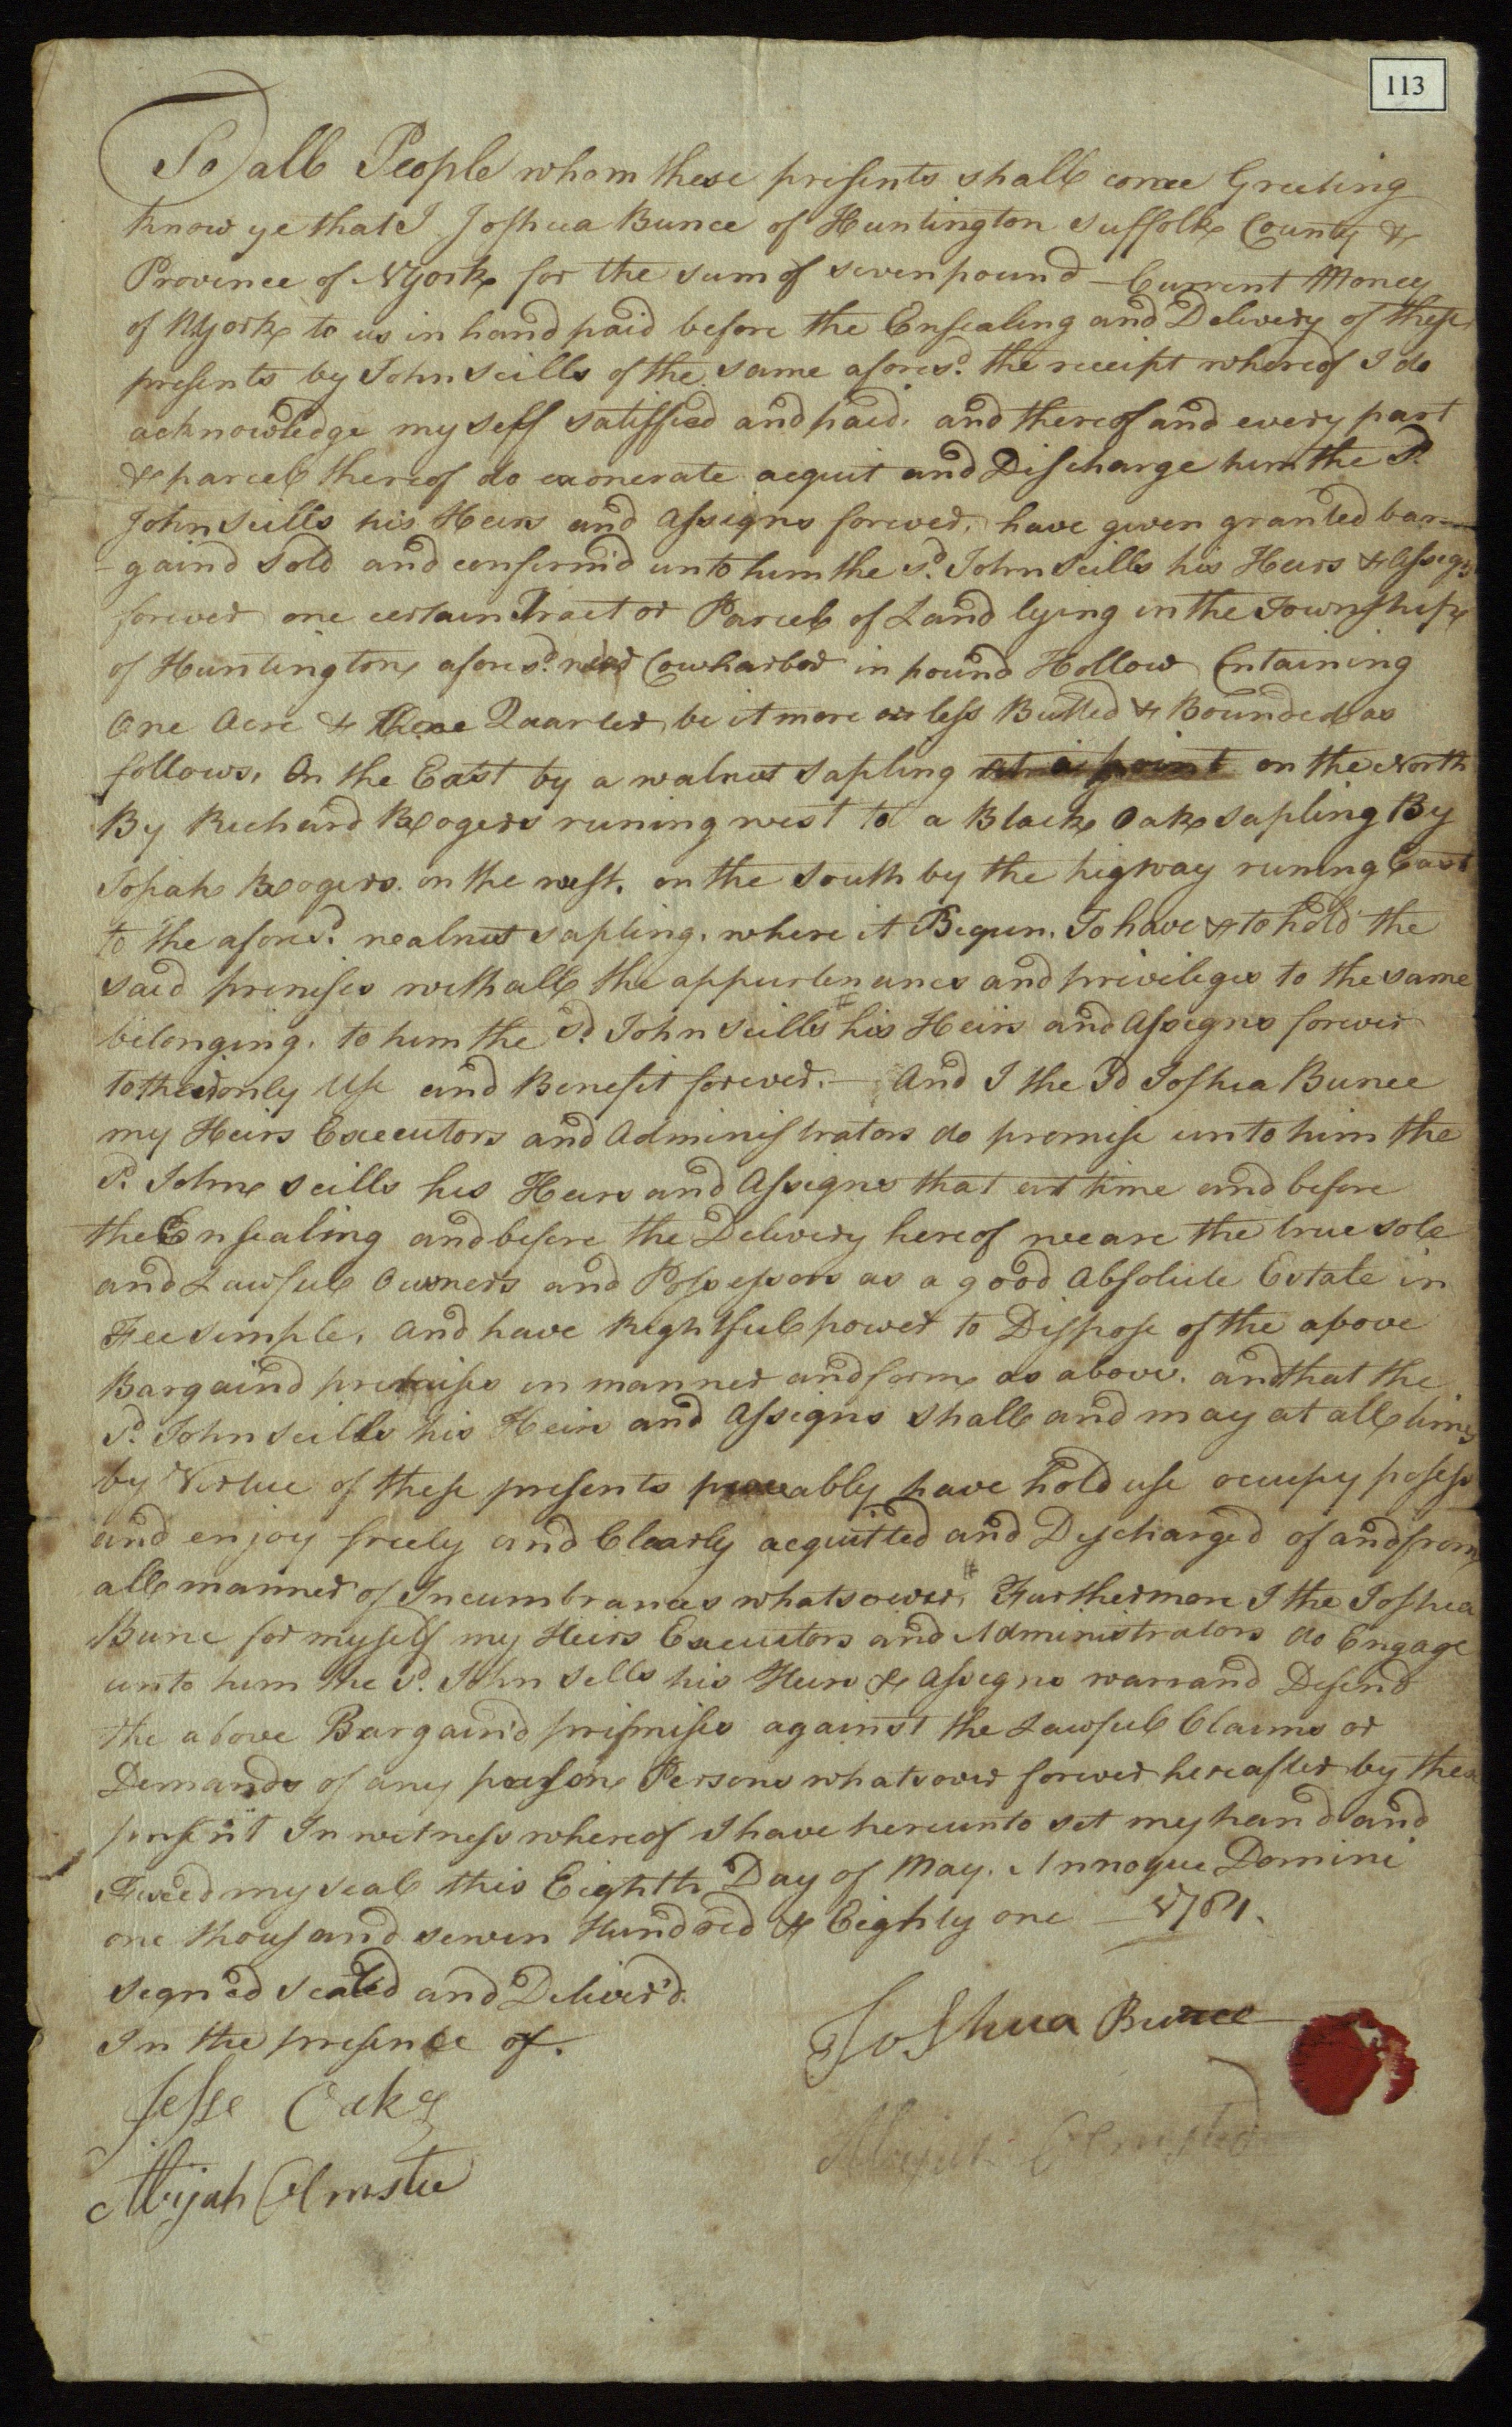 113
To all People whom these presents shall come Greeting
know ye that I Joshua Bunce of Huntington Suffolk County &
Province of NYork for the sum of seven pound - Current Money
of NYork to us in hand paid before the Ensealing and Delivery of these
presents by John Scills of the same afores.d the receipt whereof I do
acknowledge my self satisfied and paid. and thereof and every part
& parcel thereof do exonerate acquit and Discharge him the sd.
John Scills his Heirs and Assigns forever, have given granted bar-
-gaind Sold and confirm'd unto him the sd. John Scills his Heirs & Assigs
forever one certain Tract or Parcel of Land lying in the Township
of Huntington afores.d near Cowharbor in pound Hollow Cntaining
One Acre & three Quarter be it more or less Butted & Bounded as
follows, On the East by a walnut sapling at a point on the North
By Richard Rogers runing west to a Black Oak sapling By
Josiah Rogers. on the west. on the South by the higway runing East
to the afores.d walnut sapling. where it Begun. To have & to hold the
said primises with all the appurtenances and privileges to the same
belonging. to him the sd. John Scills his Heirs and Assigns forever
to their only Use and Benefit forever. - And I the sd Joshua Bunce
my Heirs Executors and Administrators do promise unto him the
sd. John Scills his Heirs and Assigns that at time and before
the Ensealing and before the Delivery hereof we are the true sole
and Lawful Owners and Possessors as a good Absolute Estate in
Fee simple, And have Rightful power to Dispose of the above
Bargaind premises in manner and form as above. and that the
sd. John Scills his Heirs and Assigns shall and may at all times
by Virtue of these presents peaceably have hold use occupy posess
and enjoy freely and Clearly acquitted and Discharged of and from
all manner of Incumbrances whatsoever, Furthermore I the Joshua
Bunc for myself my Heirs Executors and Administrators do Engage
unto him the sd. John Sells his Heirs & Assigns warrand Defend
the above Bargain'd primises against the Lawful Claims or
Demands of any person Persons whatsover forever hereafter by these
present In witness whereof I have hereunto set my hand and
Fixed my seal this Eighth Day of May. Annoque Domini
one thousand seven Hundred & Eighty one - 1781.
Signed sealed and Deliver'd.
In the presence of.
Joshua Bunce
Jesse Oaks
Abijah Olmsted
Abijah Olmste